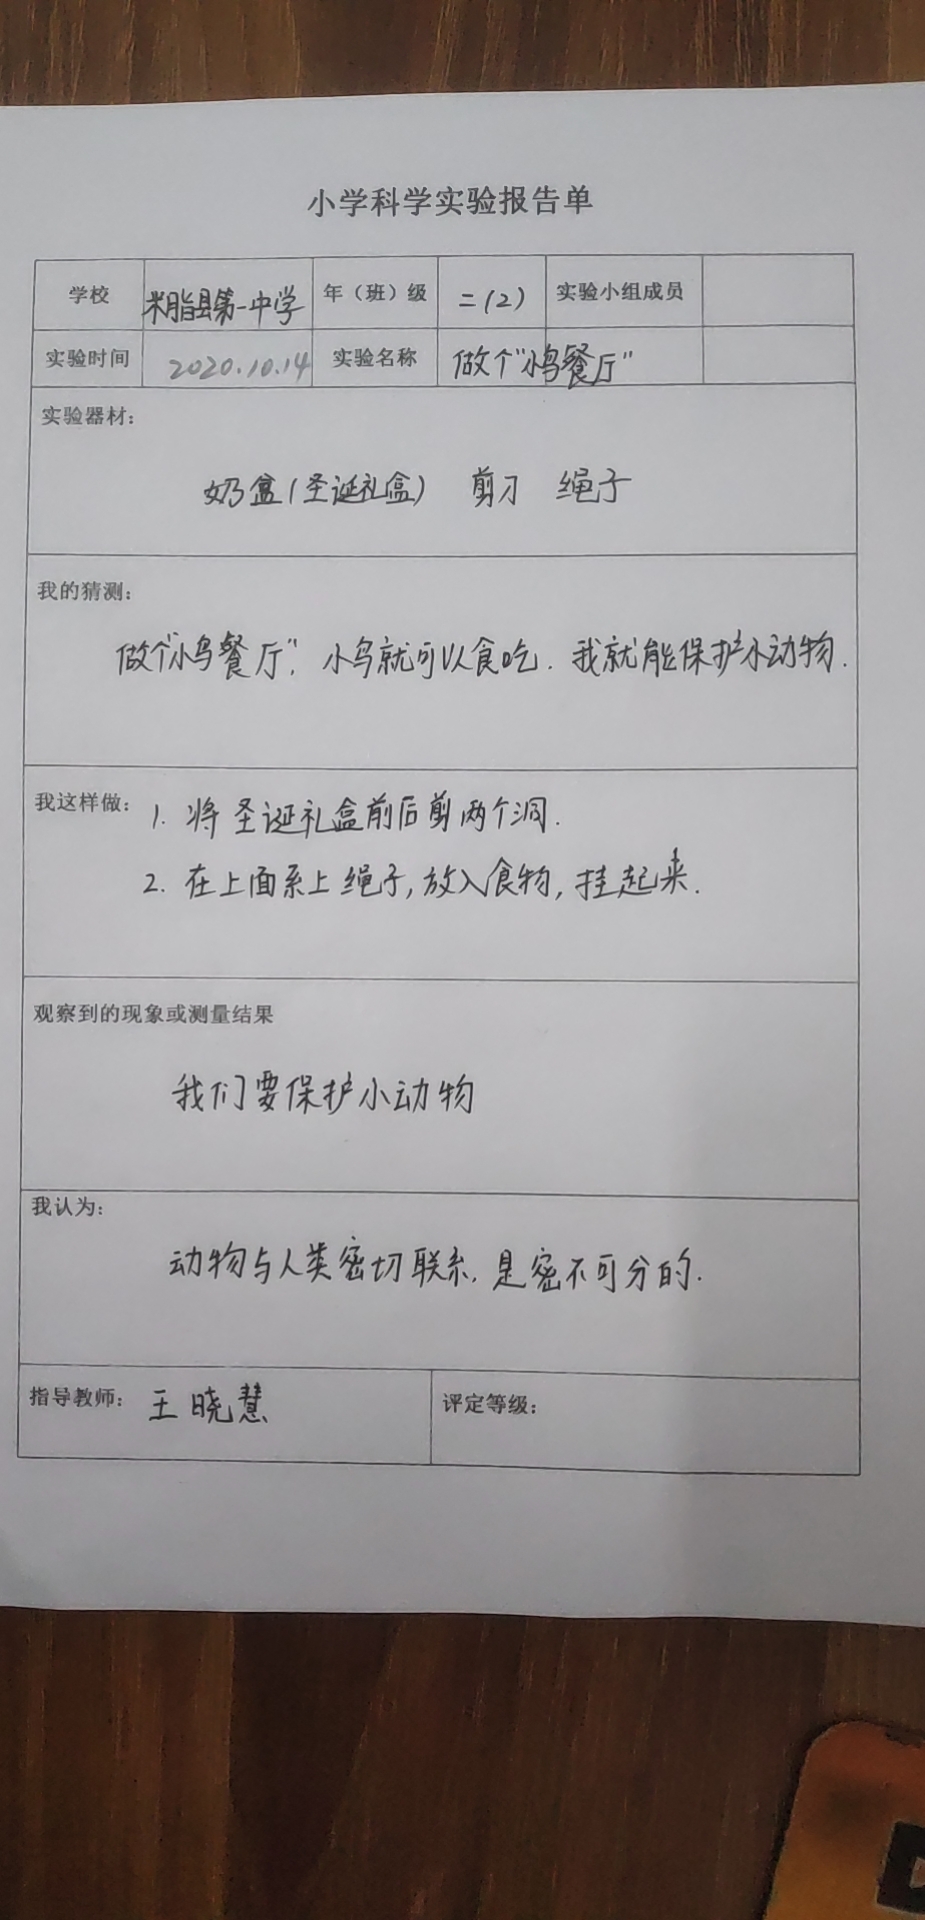 小学科学实验报告单
学校 米脂县第一中学 年（班）级 二(2) 实验小组成员
实验时间 2020.10.14 实验名称 做个“小鸟餐厅”
实验器材：
奶盒(圣诞礼盒) 剪刀 绳子
我的猜测：
做个“小鸟餐厅”. 小鸟就可以食吃. 我就能保护小动物.
我这样做： 1. 将圣诞礼盒前后剪两个洞.
2. 在上面系上绳子,放入食物,挂起来.
观察到的现象或测量结果
我们要保护小动物
我认为：
动物与人类密切联系. 是密不可分的.
指导教师： 王晓慧 评定等级：